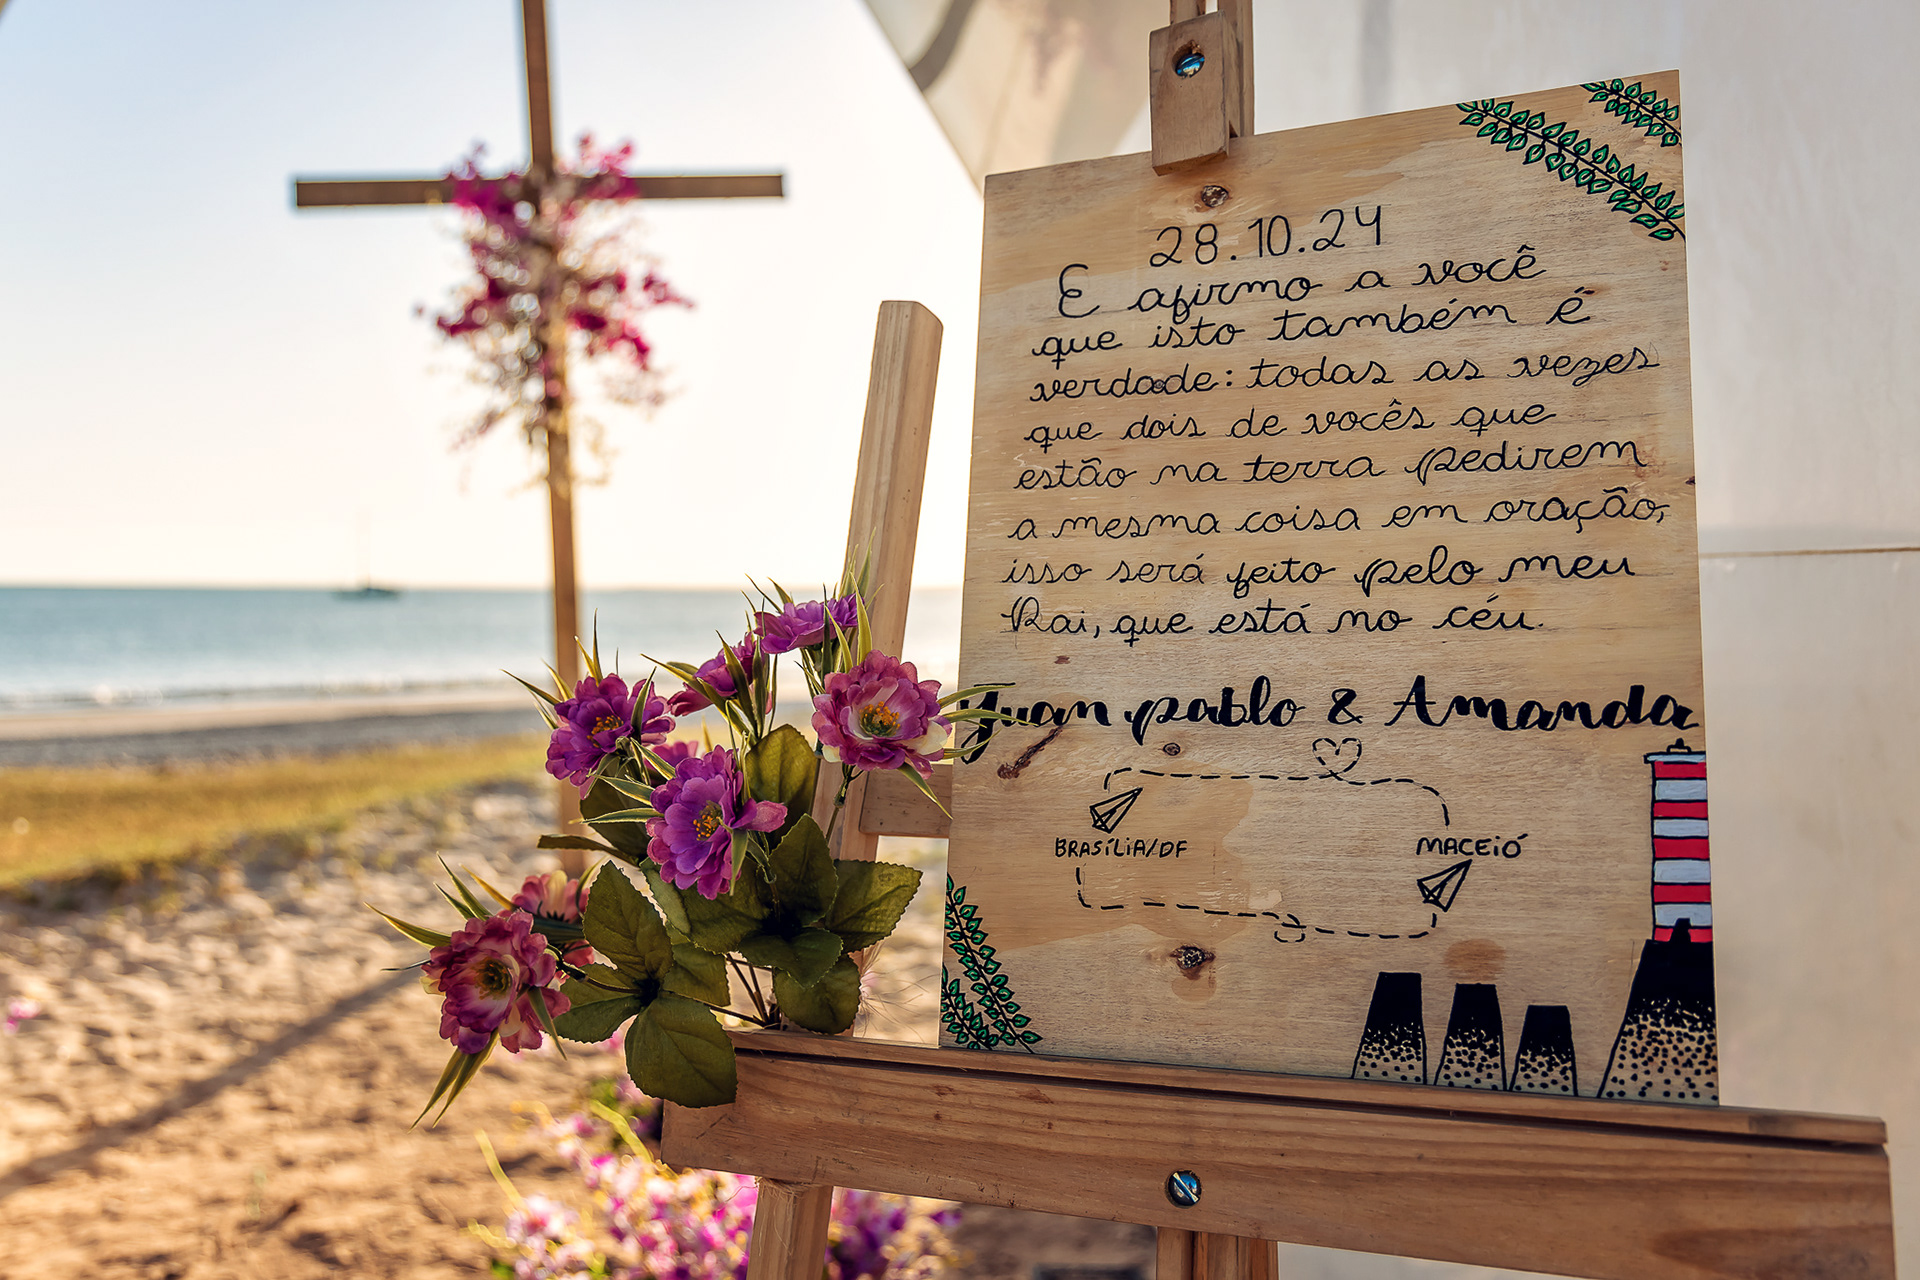 28.10.24
E afirmo a você
que isto também é
verdade: todas as vezes
que dois de vocês que
estão na terra pedirem
a mesma coisa em oração,
isso será feito pelo meu
Pai, que está no céu.
Juan pablo & Amanda
BRASÍLIA/DF
MACEIÓ